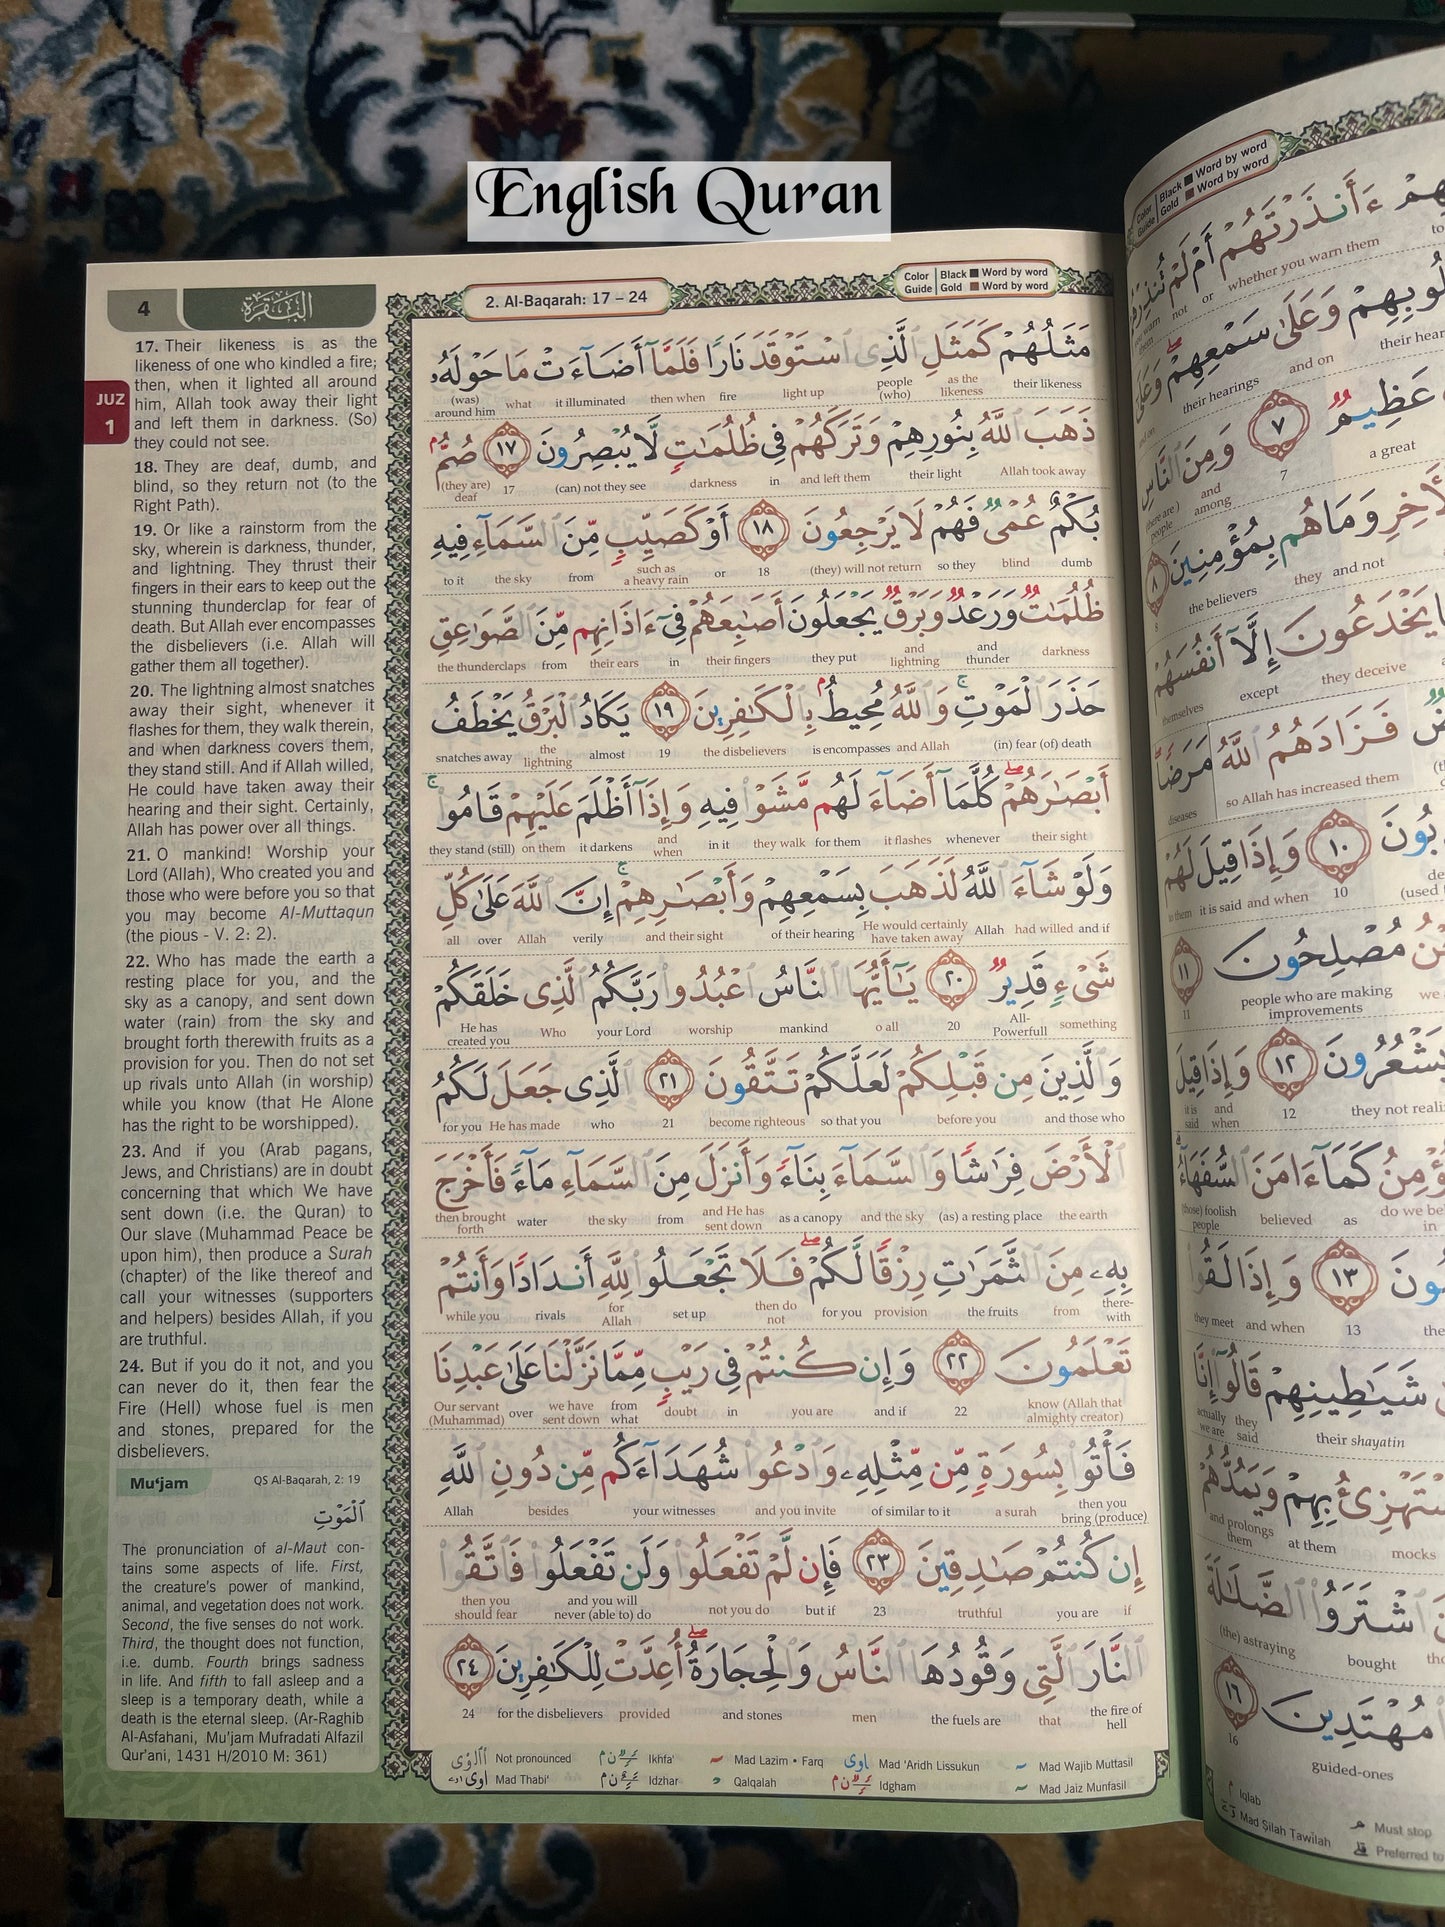 English Quran
4
البقرة
JUZ
1
17. Their likeness is as the
likeness of one who kindled a fire;
then, when it lighted all around
him, Allah took away their light
and left them in darkness. (So)
they could not see.
18. They are deaf, dumb, and
blind, so they return not (to the
Right Path).
19. Or like a rainstorm from the
sky, wherein is darkness, thunder,
and lightning. They thrust their
fingers in their ears to keep out the
stunning thunderclap for fear of
death. But Allah ever encompasses
the disbelievers (i.e. Allah will
gather them all together).
20. The lightning almost snatches
away their sight, whenever it
flashes for them, they walk therein,
and when darkness covers them,
they stand still. And if Allah willed,
He could have taken away their
hearing and their sight. Certainly,
Allah has power over all things.
21. O mankind! Worship your
Lord (Allah), Who created you and
those who were before you so that
you may become Al-Muttaqun
(the pious - V. 2: 2).
22. Who has made the earth a
resting place for you, and the
sky as a canopy, and sent down
water (rain) from the sky and
brought forth therewith fruits as a
provision for you. Then do not set
up rivals unto Allah (in worship)
while you know (that He Alone
has the right to be worshipped).
23. And if you (Arab pagans,
Jews, and Christians) are in doubt
concerning that which We have
sent down (i.e. the Quran) to
Our slave (Muhammad Peace be
upon him), then produce a Surah
(chapter) of the like thereof and
call your witnesses (supporters
and helpers) besides Allah, if you
are truthful.
24. But if you do it not, and you
can never do it, then fear the
Fire (Hell) whose fuel is men
and stones, prepared for the
disbelievers.
Mu'jam QS Al-Baqarah, 2: 19
ٱلْمَوْتِ
The pronunciation of al-Maut con-
tains some aspects of life. First,
the creature's power of mankind,
animal, and vegetation does not work.
Second, the five senses do not work.
Third, the thought does not function,
i.e. dumb. Fourth brings sadness
in life. And fifth to fall asleep and a
sleep is a temporary death, while a
death is the eternal sleep. (Ar-Raghib
Al-Asfahani, Mu'jam Mufradati Alfazil
Qur'ani, 1431 H/2010 M: 361)
2. Al-Baqarah: 17 – 24
Color Guide Black Word by word
Gold Word by word
مَثَلُهُمْ كَمَثَلِ ٱلَّذِى ٱسْتَوْقَدَ نَارًا فَلَمَّآ أَضَآءَتْ مَا حَوْلَهُۥ
their likeness as the likeness people (who) light up fire then when it illuminated what (was) around him
ذَهَبَ ٱللَّهُ بِنُورِهِمْ وَتَرَكَهُمْ فِى ظُلُمَـٰتٍ لَّا يُبْصِرُونَ ١٧ صُمٌّۢ
Allah took away their light and left them in darkness (can) not they see 17 (they are) deaf
بُكْمٌ عُمْىٌ فَهُمْ لَا يَرْجِعُونَ ١٨ أَوْ كَصَيِّبٍ مِّنَ ٱلسَّمَآءِ فِيهِ
dumb blind so they (they) will not return 18 or such as a heavy rain from the sky to it
ظُلُمَـٰتٌ وَرَعْدٌ وَبَرْقٌ يَجْعَلُونَ أَصَـٰبِعَهُمْ فِىٓ ءَاذَانِهِم مِّنَ ٱلصَّوَٰعِقِ
darkness and thunder and lightning they put their fingers in their ears from the thunderclaps
حَذَرَ ٱلْمَوْتِ ۚ وَٱللَّهُ مُحِيطٌۢ بِٱلْكَـٰفِرِينَ ١٩ يَكَادُ ٱلْبَرْقُ يَخْطَفُ
(in) fear (of) death and Allah is encompasses the disbelievers 19 almost the lightning snatches away
أَبْصَـٰرَهُمْ ۖ كُلَّمَآ أَضَآءَ لَهُم مَّشَوْا۟ فِيهِ وَإِذَآ أَظْلَمَ عَلَيْهِمْ قَامُوا۟ ۚ
their sight whenever it flashes for them they walk in it and when it darkens on them they stand (still)
وَلَوْ شَآءَ ٱللَّهُ لَذَهَبَ بِسَمْعِهِمْ وَأَبْصَـٰرِهِمْ ۚ إِنَّ ٱللَّهَ عَلَىٰ كُلِّ
and if had willed Allah He would certainly have taken away of their hearing and their sight verily Allah over all
شَىْءٍ قَدِيرٌ ٢٠ يَـٰٓأَيُّهَا ٱلنَّاسُ ٱعْبُدُوا۟ رَبَّكُمُ ٱلَّذِى خَلَقَكُمْ
something All-Powerfull 20 o all mankind worship your Lord Who He has created you
وَٱلَّذِينَ مِن قَبْلِكُمْ لَعَلَّكُمْ تَتَّقُونَ ٢١ ٱلَّذِى جَعَلَ لَكُمُ
and those who before you so that you become righteous 21 who He has made for you
ٱلْأَرْضَ فِرَٰشًا وَٱلسَّمَآءَ بِنَآءً وَأَنزَلَ مِنَ ٱلسَّمَآءِ مَآءً فَأَخْرَجَ
the earth (as) a resting place and the sky as a canopy and He has sent down from the sky water then brought forth
بِهِۦ مِنَ ٱلثَّمَرَٰتِ رِزْقًا لَّكُمْ ۖ فَلَا تَجْعَلُوا۟ لِلَّهِ أَندَادًا وَأَنتُمْ
there-with from the fruits provision for you then do not set up for Allah rivals while you
تَعْلَمُونَ ٢٢ وَإِن كُنتُمْ فِى رَيْبٍ مِّمَّا نَزَّلْنَا عَلَىٰ عَبْدِنَا
know (Allah that almighty creator) 22 and if you are in doubt from what we have sent down over Our servant (Muhammad)
فَأْتُوا۟ بِسُورَةٍ مِّن مِّثْلِهِۦ وَٱدْعُوا۟ شُهَدَآءَكُم مِّن دُونِ ٱللَّهِ
then you bring (produce) a surah of similar to it and you invite your witnesses besides Allah
إِن كُنتُمْ صَـٰدِقِينَ ٢٣ فَإِن لَّمْ تَفْعَلُوا۟ وَلَن تَفْعَلُوا۟ فَٱتَّقُوا۟
if you are truthful 23 but if not you do and you will never (able to) do then you should fear
ٱلنَّارَ ٱلَّتِى وَقُودُهَا ٱلنَّاسُ وَٱلْحِجَارَةُ ۖ أُعِدَّتْ لِلْكَـٰفِرِينَ ٢٤
the fire of hell that the fuels are men and stones provided for the disbelievers 24
Not pronounced Ikhfa' Mad Lazim • Farq Mad 'Aridh Lissukun Mad Wajib Muttasil
Mad Thabi' Idzhar Qalqalah Idgham Mad Jaiz Munfasil
Color Guide Black Word by word
Gold Word by word
ءَأَنذَرْتَهُمْ أَمْ لَمْ
whether you warn them or not
وَعَلَىٰ سَمْعِهِمْ
and on their hearings
عَظِيمٌ ٧ وَمِنَ ٱلنَّاسِ
a great 7 and among (there are) people
وَمَا هُم بِمُؤْمِنِينَ ٨
and not they the believers
يَخْدَعُونَ إِلَّآ أَنفُسَهُمْ
they deceive except themselves
فَزَادَهُمُ ٱللَّهُ مَرَضًا
so Allah has increased them diseases
١٠ وَإِذَا قِيلَ لَهُمْ
10 and when it is said to them
مُصْلِحُونَ ١١
people who are making improvements 11
١٢ وَإِذَا قِيلَ
they not 12 and when it is said
كَمَآ ءَامَنَ ٱلسُّفَهَآءُ
as believed (those) foolish people
١٣ وَإِذَا لَقُوا۟
13 and when they meet
شَيَـٰطِينِهِمْ قَالُوٓا۟ إِنَّا
their shayatin they said actually we are
بِهِمْ وَيَمُدُّهُمْ
mocks at them and prolongs them
ٱشْتَرَوُا۟ ٱلضَّلَـٰلَةَ
bought (the) astraying
مُهْتَدِينَ ١٦
guided-ones 16
Iqlab Must stop
Mad Ṣilah Ṭawīlah Preferred to